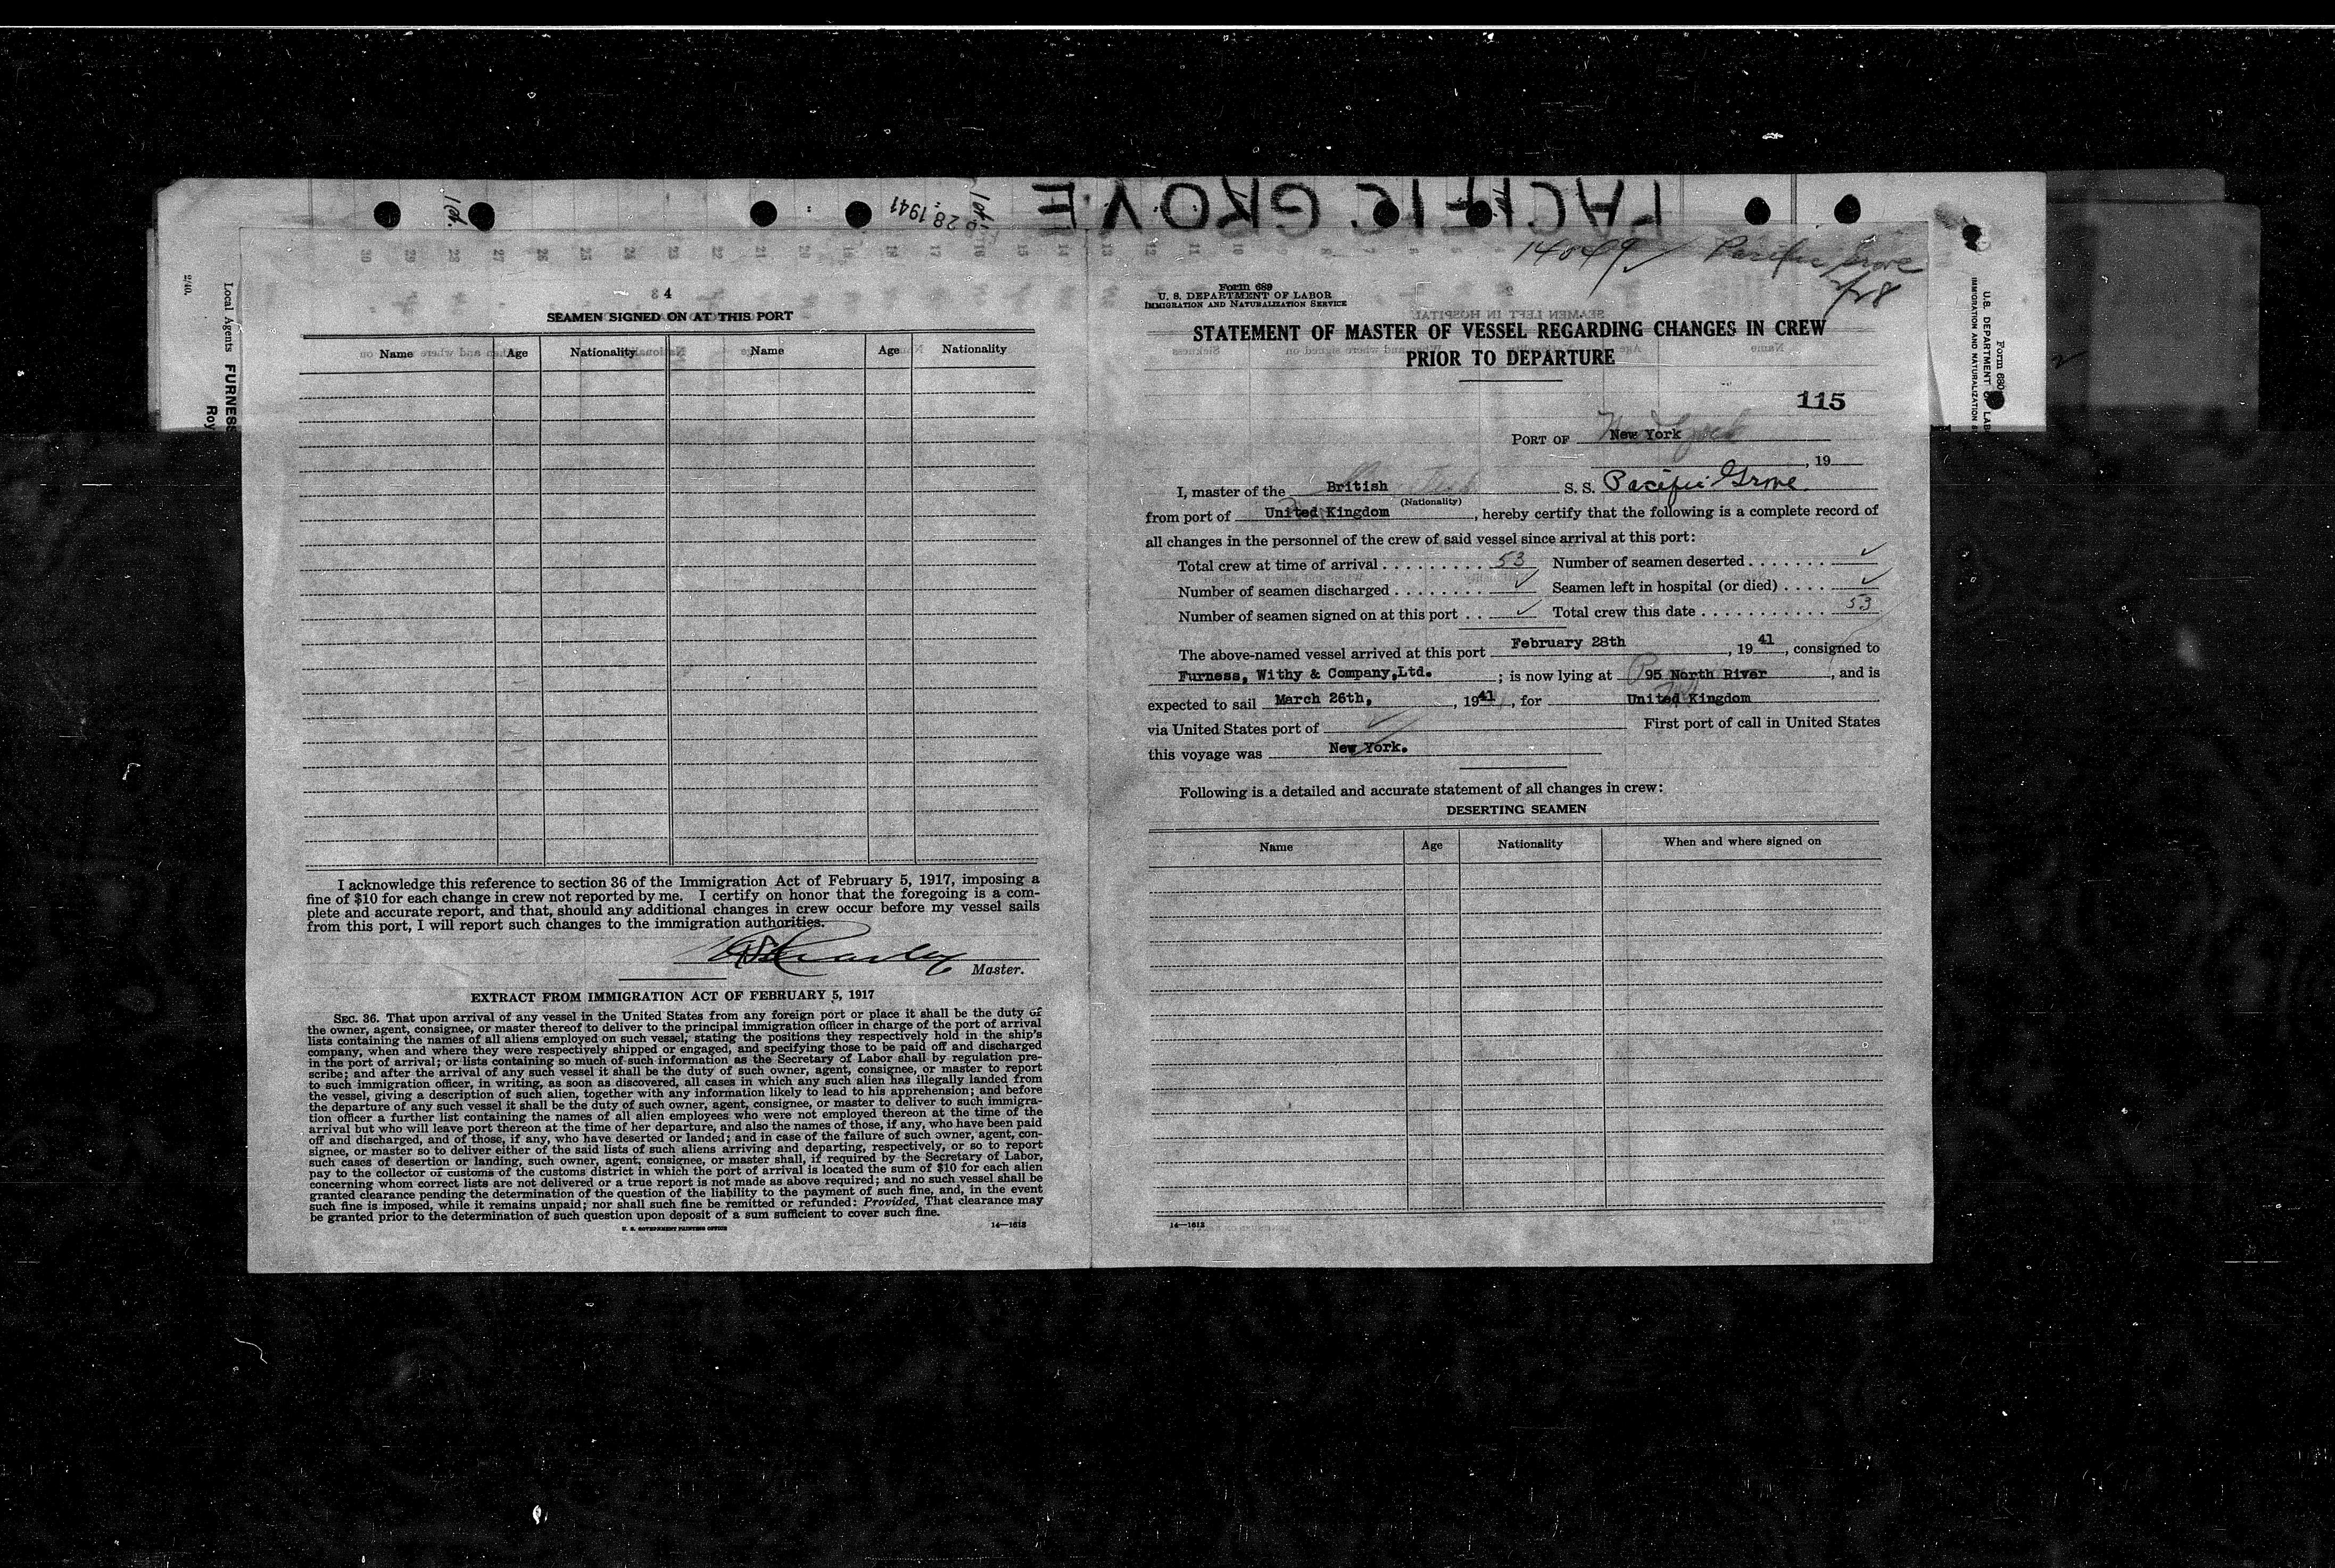 PACIFIC GROVE
28 1941
2/40.
Local Agents FURNESS
Roy
4
SEAMEN SIGNED ON AT THIS PORT
Name Age Nationality Name Age Nationality
I acknowledge this reference to section 36 of the Immigration Act of February 5, 1917, imposing a
fine of $10 for each change in crew not reported by me. I certify on honor that the foregoing is a com-
plete and accurate report, and that, should any additional changes in crew occur before my vessel sails
from this port, I will report such changes to the immigration authorities.
Master.
EXTRACT FROM IMMIGRATION ACT OF FEBRUARY 5, 1917
SEC. 36. That upon arrival of any vessel in the United States from any foreign port or place it shall be the duty of
the owner, agent, consignee, or master thereof to deliver to the principal immigration officer in charge of the port of arrival
lists containing the names of all aliens employed on such vessel, stating the positions they respectively hold in the ship's
company, when and where they were respectively shipped or engaged, and specifying those to be paid off and discharged
in the port of arrival; or lists containing so much of such information as the Secretary of Labor shall by regulation pre-
scribe; and after the arrival of any such vessel it shall be the duty of such owner, agent, consignee, or master to report
to such immigration officer, in writing, as soon as discovered, all cases in which any such alien has illegally landed from
the vessel, giving a description of such alien, together with any information likely to lead to his apprehension; and before
the departure of any such vessel it shall be the duty of such owner, agent, consignee, or master to deliver to such immigra-
tion officer a further list containing the names of all alien employees who were not employed thereon at the time of the
arrival but who will leave port thereon at the time of her departure, and also the names of those, if any, who have been paid
off and discharged, and of those, if any, who have deserted or landed; and in case of the failure of such owner, agent, con-
signee, or master so to deliver either of the said lists of such aliens arriving and departing, respectively, or so to report
such cases of desertion or landing, such owner, agent, consignee, or master shall, if required by the Secretary of Labor,
pay to the collector of customs of the customs district in which the port of arrival is located the sum of $10 for each alien
concerning whom correct lists are not delivered or a true report is not made as above required; and no such vessel shall be
granted clearance pending the determination of the question of the liability to the payment of such fine, and, in the event
such fine is imposed, while it remains unpaid; nor shall such fine be remitted or refunded: Provided, That clearance may
be granted prior to the determination of such question upon deposit of a sum sufficient to cover such fine.
U. S. GOVERNMENT PRINTING OFFICE 14—1613
14049 Pacific Grove
2/28
Form 689
U. S. DEPARTMENT OF LABOR
IMMIGRATION AND NATURALIZATION SERVICE
STATEMENT OF MASTER OF VESSEL REGARDING CHANGES IN CREW
PRIOR TO DEPARTURE
115
PORT OF New York
, 19
I, master of the British S. S. Pacific Grove
(Nationality)
from port of United Kingdom, hereby certify that the following is a complete record of
all changes in the personnel of the crew of said vessel since arrival at this port:
Total crew at time of arrival 53 Number of seamen deserted ✓
Number of seamen discharged ✓ Seamen left in hospital (or died) ✓
Number of seamen signed on at this port ✓ Total crew this date 53
The above-named vessel arrived at this port February 28th, 1941, consigned to
Furness, Withy & Company, Ltd.; is now lying at 95 North River, and is
expected to sail March 26th, 1941, for United Kingdom
via United States port of ✓ First port of call in United States
this voyage was New York.
Following is a detailed and accurate statement of all changes in crew:
DESERTING SEAMEN
Name Age Nationality When and where signed on
14—1613
Form 680
U. S. DEPARTMENT OF LAB
IMMIGRATION AND NATURALIZATION